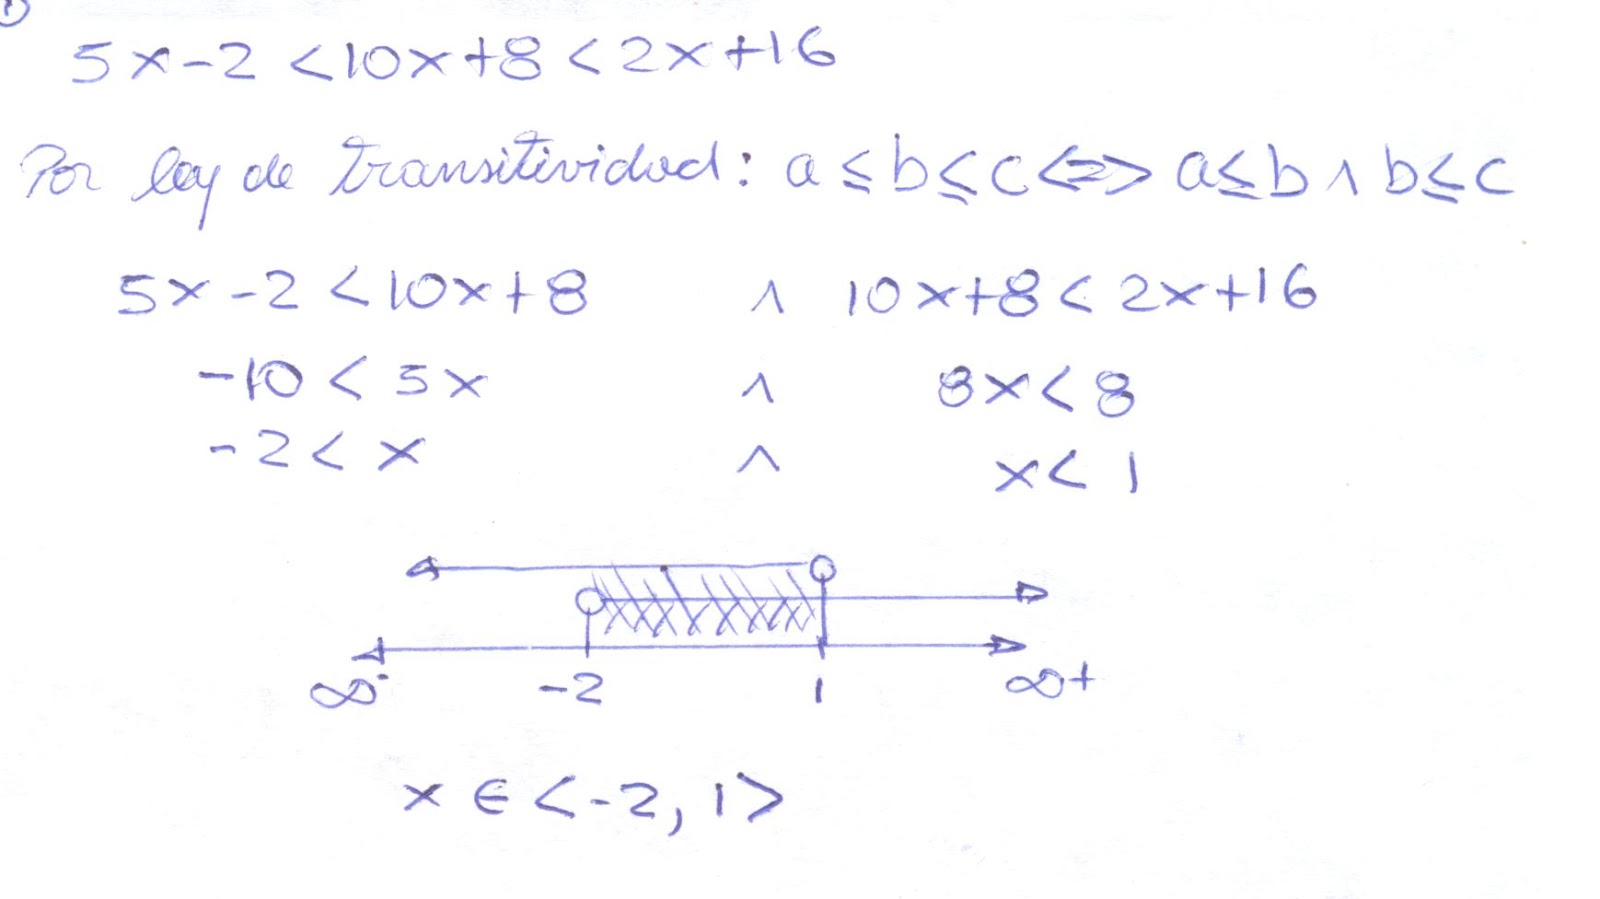 1
5x-2 <10x+8 < 2x+16
Por ley de transitividad: a≤b≤c<=> a≤b ∧ b≤c
5x-2 <10x+8 ∧ 10x+8 < 2x+16
-10 < 5x ∧ 8x< 8
-2 < x ∧ x< 1
∞- -2 1 ∞+
x ∈ <-2, 1>